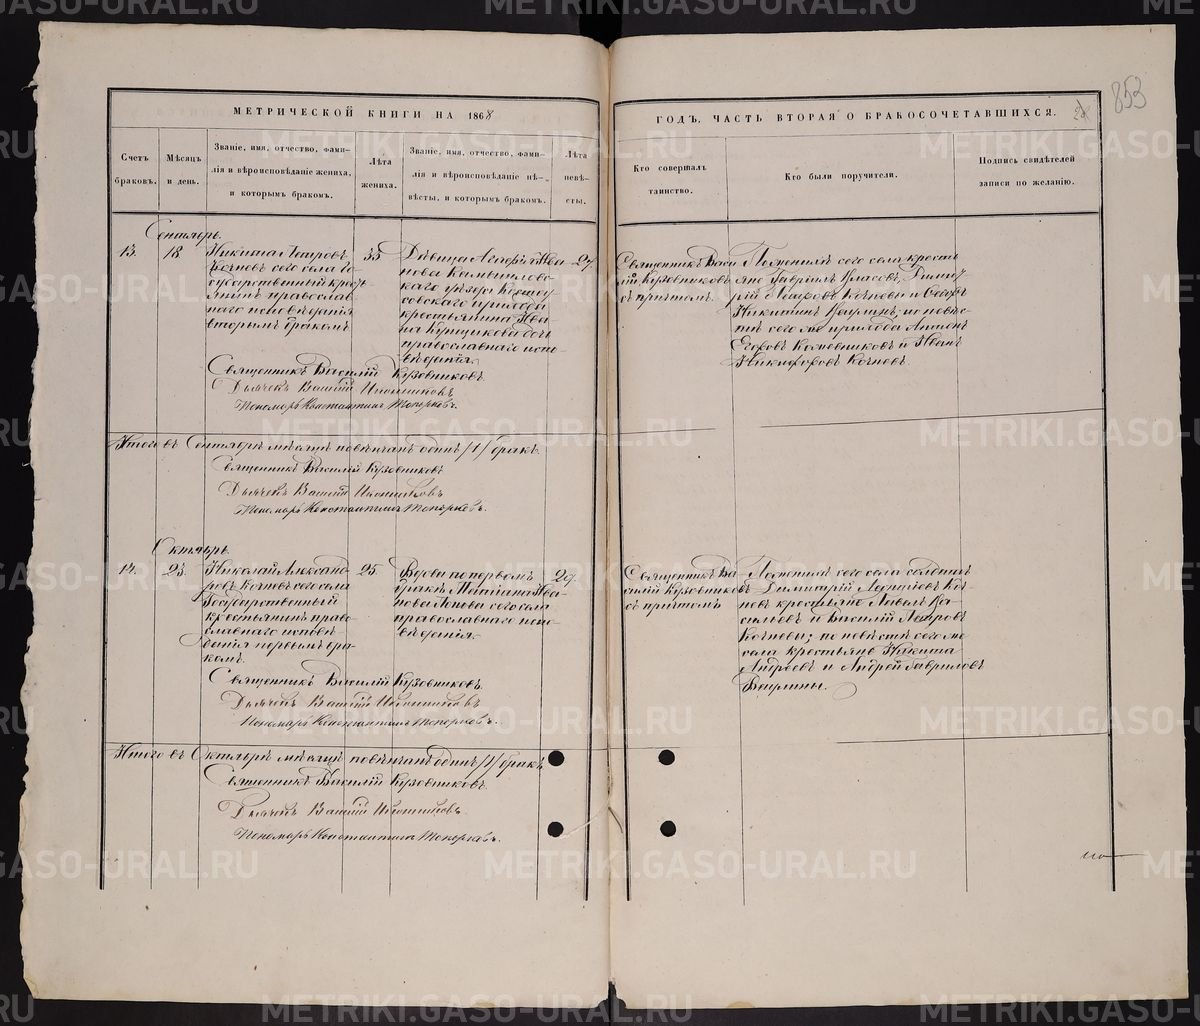 853
МЕТРИЧЕСКОЙ КНИГИ НА 1868
ГОДЪ, ЧАСТЬ ВТОРАЯ О БРАКОСОЧЕТАВШИХСЯ.
Счетъ браковъ.
Мѣсяцъ и день.
Званіе, имя, отчество, фами-
лія и вѣроисповѣданіе жениха,
и которымъ бракомъ.
Лѣта жениха.
Званіе, имя, отчество, фами-
лія и вѣроисповѣданіе не-
вѣсты, и которымъ бракомъ.
Лѣта невѣ-
сты.
Кто совершалъ
таинство.
Кто были поручители.
Подпись свидѣтелей
записи по желанію.
Сентябрь.
13.
18
Никита Петровъ
Кочневъ сего села Го-
сударственный кресть-
янинъ православ-
наго исповѣданія
вторымъ бракомъ
35
Дѣвица Ива-
нова Камышлов-
скаго уѣзда
прихода
крестьянина Ива-
на Кунщикова дочь
православнаго испо-
вѣданія.
27.
Священникъ Васи-
лій Кузовниковъ
съ причтомъ.
По женихѣ сего села кресть-
яне Гавріилъ Власовъ, Димит-
рій Петровъ Кочневы и Ѳедоръ
Никитинъ по невѣс-
тѣ сего же прихода Антонъ
Егоровъ Кожевниковъ и Иванъ
Никифоровъ Кочневъ.
Священникъ Василій Кузовниковъ.
Дьячекъ Василій
Пономарь Константинъ Топорковъ.
Итого въ Сентябрѣ мѣсяцѣ повѣнчанъ одинъ /1/ бракъ.
Священникъ Василій Кузовниковъ
Дьячекъ Василій
Пономарь Константинъ Топорковъ.
Октябрь.
14.
23.
Николай Алексан-
ровъ Кочневъ сего села
Государственный
крестьянинъ право-
славнаго исповѣ-
данія первымъ бра-
комъ.
25.
Вдова по первомъ
бракѣ Ива-
нова Попова сего села
православнаго испо-
вѣданія.
29.
Священникъ Ва-
силій Кузовниковъ
съ причтомъ
По женихѣ сего села солдатъ
Димитрій Коч-
невъ крестьяне Павелъ Ва-
сильевъ и Василій Петровъ
Кочневы; по невѣстѣ сего же
села крестьяне Никита
Андреевъ и Андрей Гавриловъ
Священникъ Василій Кузовниковъ.
Дьячекъ Василій
Пономарь Константинъ Топорковъ.
Итого въ Октябрѣ мѣсяцѣ повѣнчанъ одинъ /1/ бракъ.
Священникъ Василій Кузовниковъ.
Дьячекъ Василій
Пономарь Константинъ Топорковъ.
METRIKI.GASO-URAL.RU